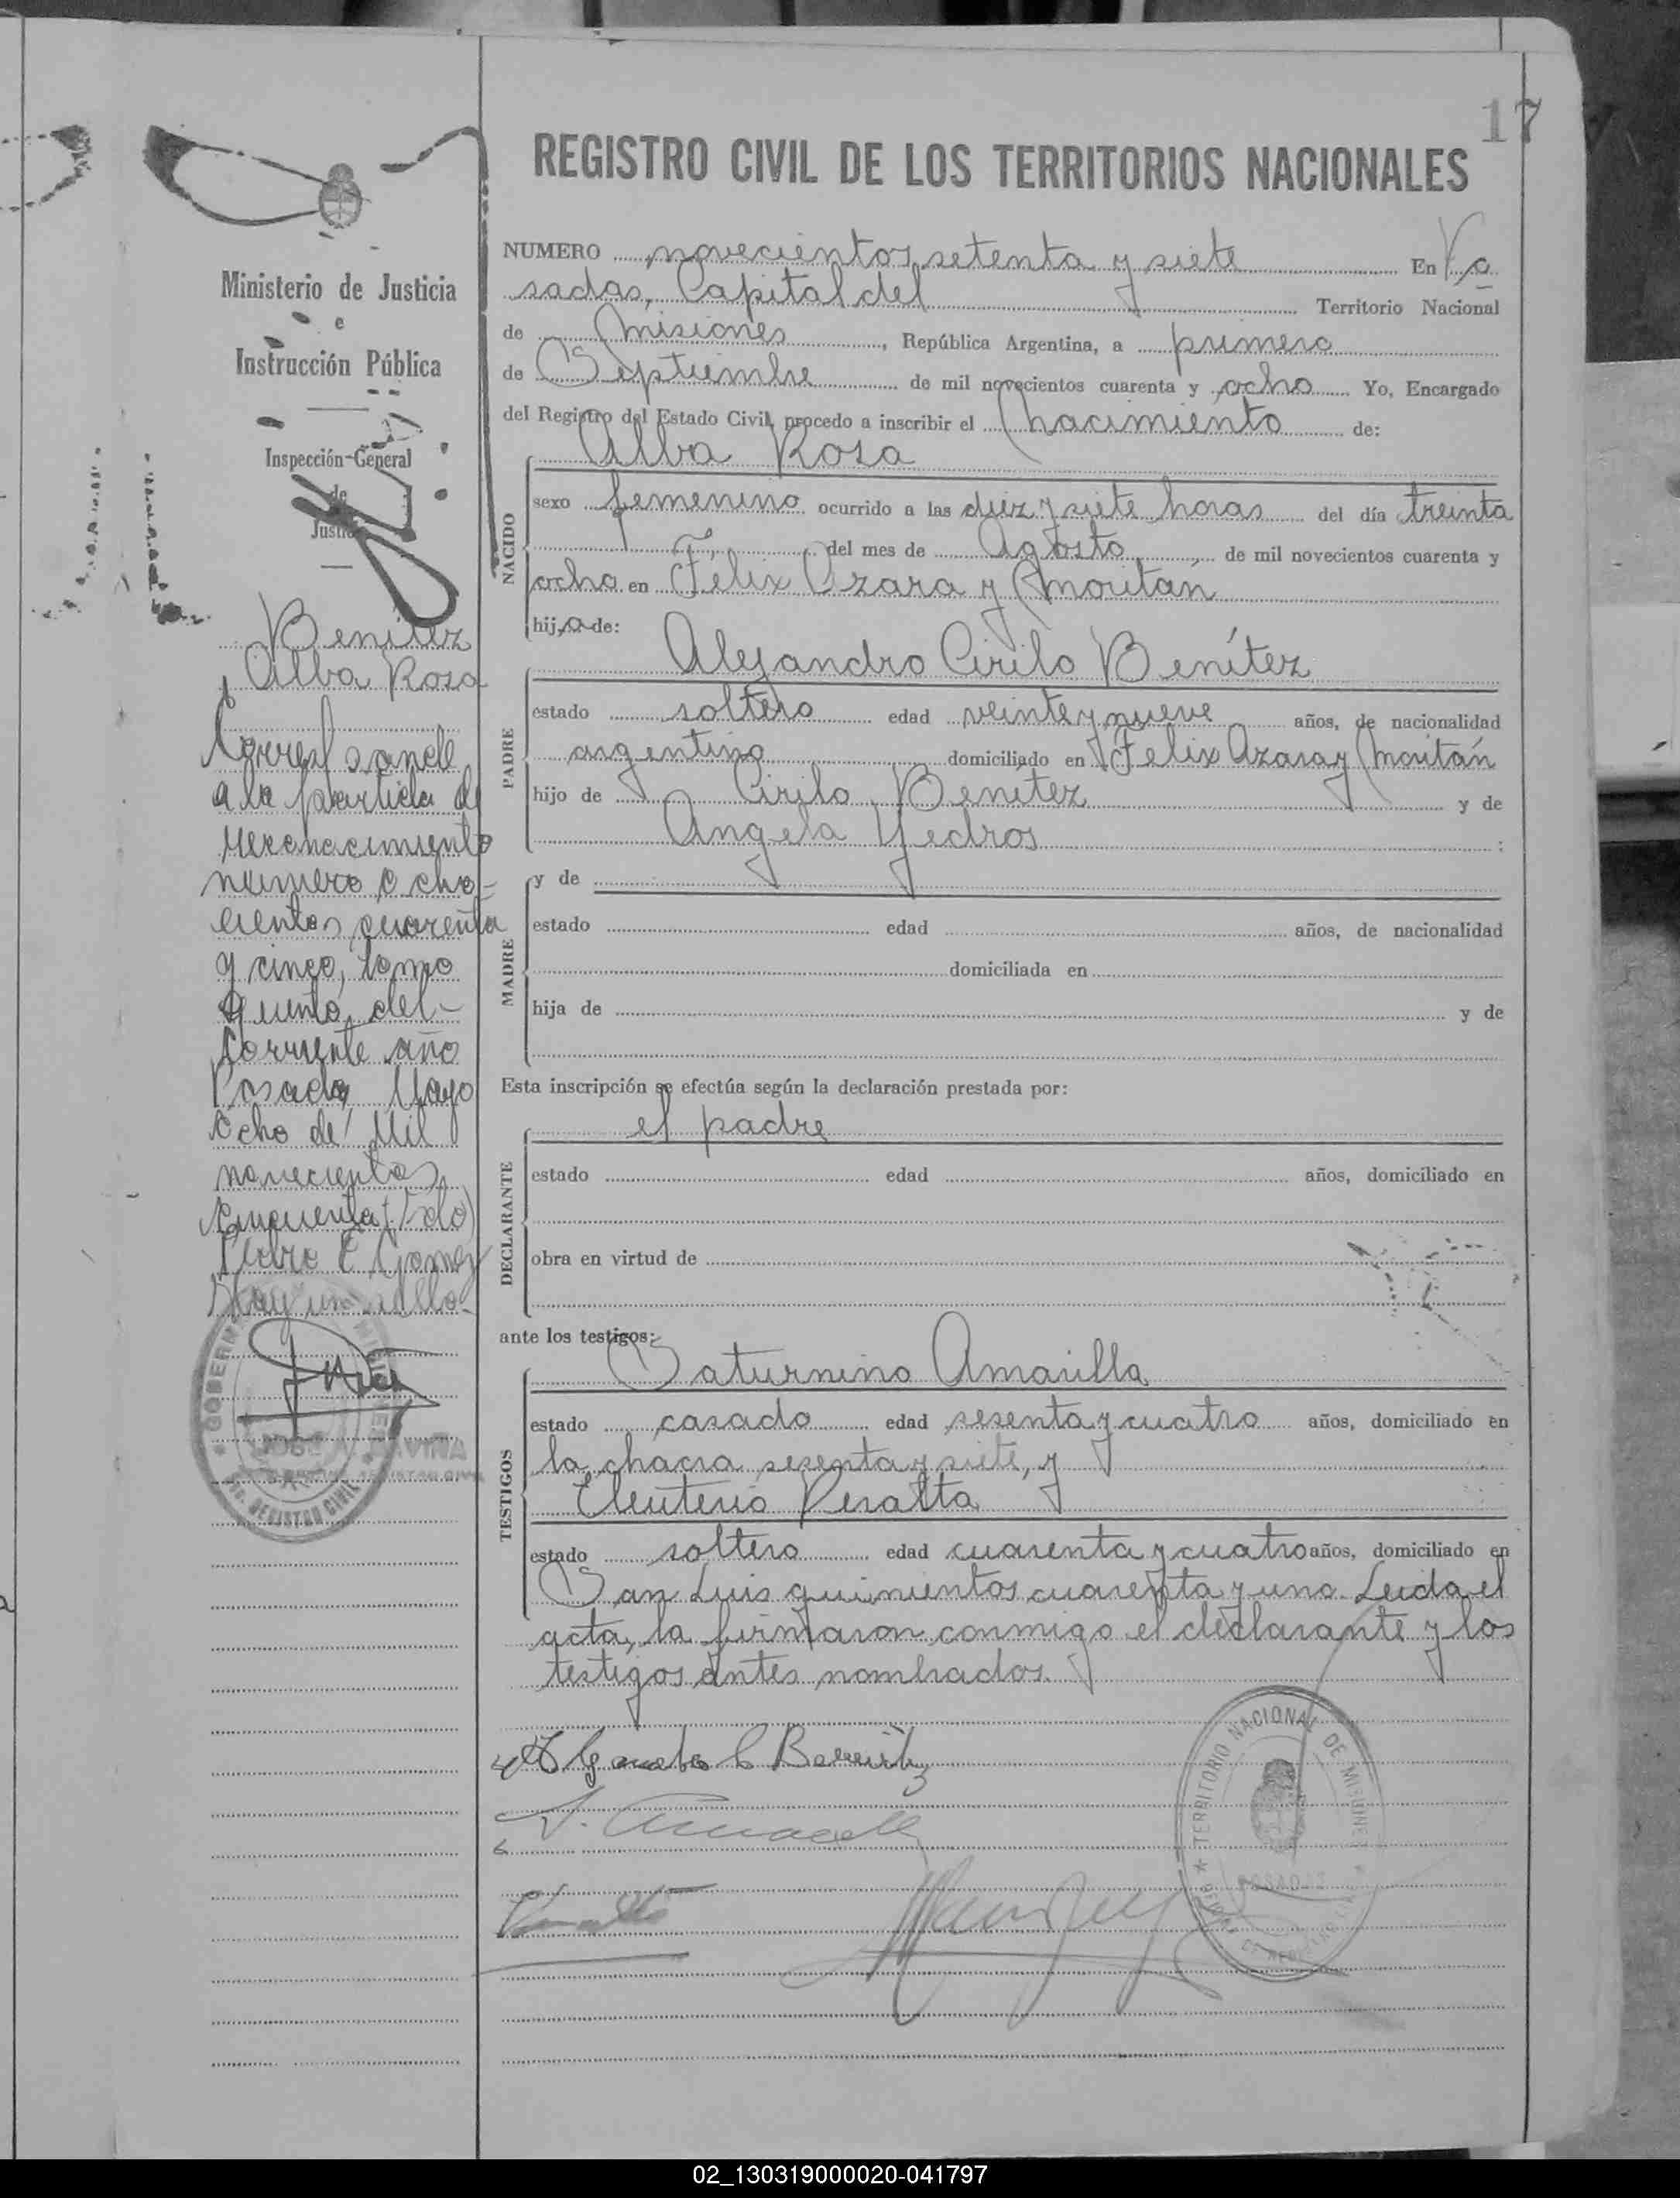 17
REGISTRO CIVIL DE LOS TERRITORIOS NACIONALES
Ministerio de Justicia
e
Instrucción Pública
Inspección General
de
Justicia
Benítez
Alba Rosa
a la partida de
reconocimiento
número ocho-
cientos cuarenta
y cinco, tomo
quinto del
corriente año
Posadas Mayo
ocho de Mil
novecientos
cincuenta (Fdo)
Pedro E Gomez
Hay un sello-
NUMERO novecientos setenta y siete En Po
sadas, Capital del Territorio Nacional
de Misiones, República Argentina, a primero
de Septiembre de mil novecientos cuarenta y ocho Yo, Encargado
del Registro del Estado Civil, procedo a inscribir el nacimiento de:
NACIDO
Alba Rosa
sexo femenino ocurrido a las diez y siete horas del día treinta
del mes de Agosto de mil novecientos cuarenta y
ocho en Félix Azara y Moritán
hija de:
PADRE
Alejandro Cirilo Benítez
estado soltero edad veinte y nueve años, de nacionalidad
argentino domiciliado en Félix Azara y Moritán
hijo de Cirilo Benítez y de
Angela Yedros :
MADRE
y de
estado edad años, de nacionalidad
domiciliada en
hija de y de
Esta inscripción se efectúa según la declaración prestada por:
DECLARANTE
el padre
estado edad años, domiciliado en
obra en virtud de
ante los testigos:
TESTIGOS
Saturnino Amarilla
estado casado edad sesenta y cuatro años, domiciliado en
la chacra sesenta y siete, y
Eleuterio Peralta
estado soltero edad cuarenta y cuatro años, domiciliado en
San Luis quinientos cuarenta y uno. Leida el
acta, la firmaron conmigo el declarante y los
testigos antes nombrados.
Alejandro C Benitez
TERRITORIO NACIONAL DE MISIONES
POSADAS
REGISTRO CIVIL
02_130319000020-041797